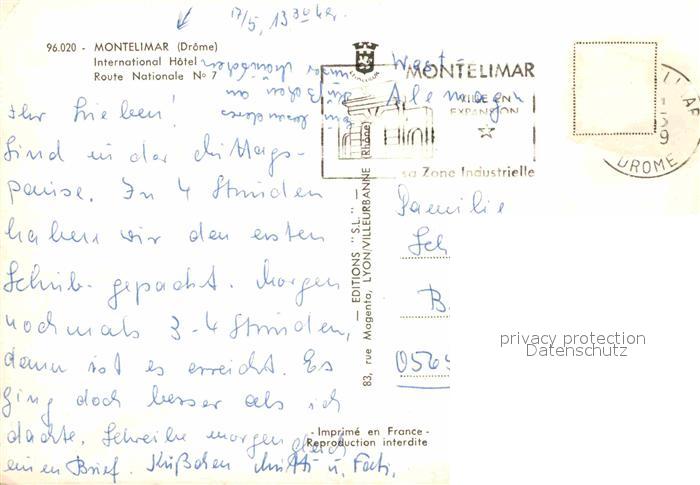 17/5, 13 30 Uhr.
96.020 - MONTELIMAR (Drôme)
International Hôtel
Route Nationale No 7
Ihr Lieben!
Sind in der Mittags-
pause. In 4 Stunden
haben wir den ersten
Schub gepackt. Morgen
nochmals 3-4 Stunden,
dann ist es erreicht. Es
ging doch besser als ich
dachte. Schreibe morgen gleich
einen Brief. Küßchen Mutti u. Fati.
83, rue Magenta, LYON/VILLEURBANNE (Rhône)
— EDITIONS "S.L." —
- Imprimé en France -
Reproduction interdite
MONTELIMAR
VILLE EN
EXPANSION
sa Zone Industrielle
DROME
West-
Alemagn
Familie
Sch
B.
0565
privacy protection
Datenschutz